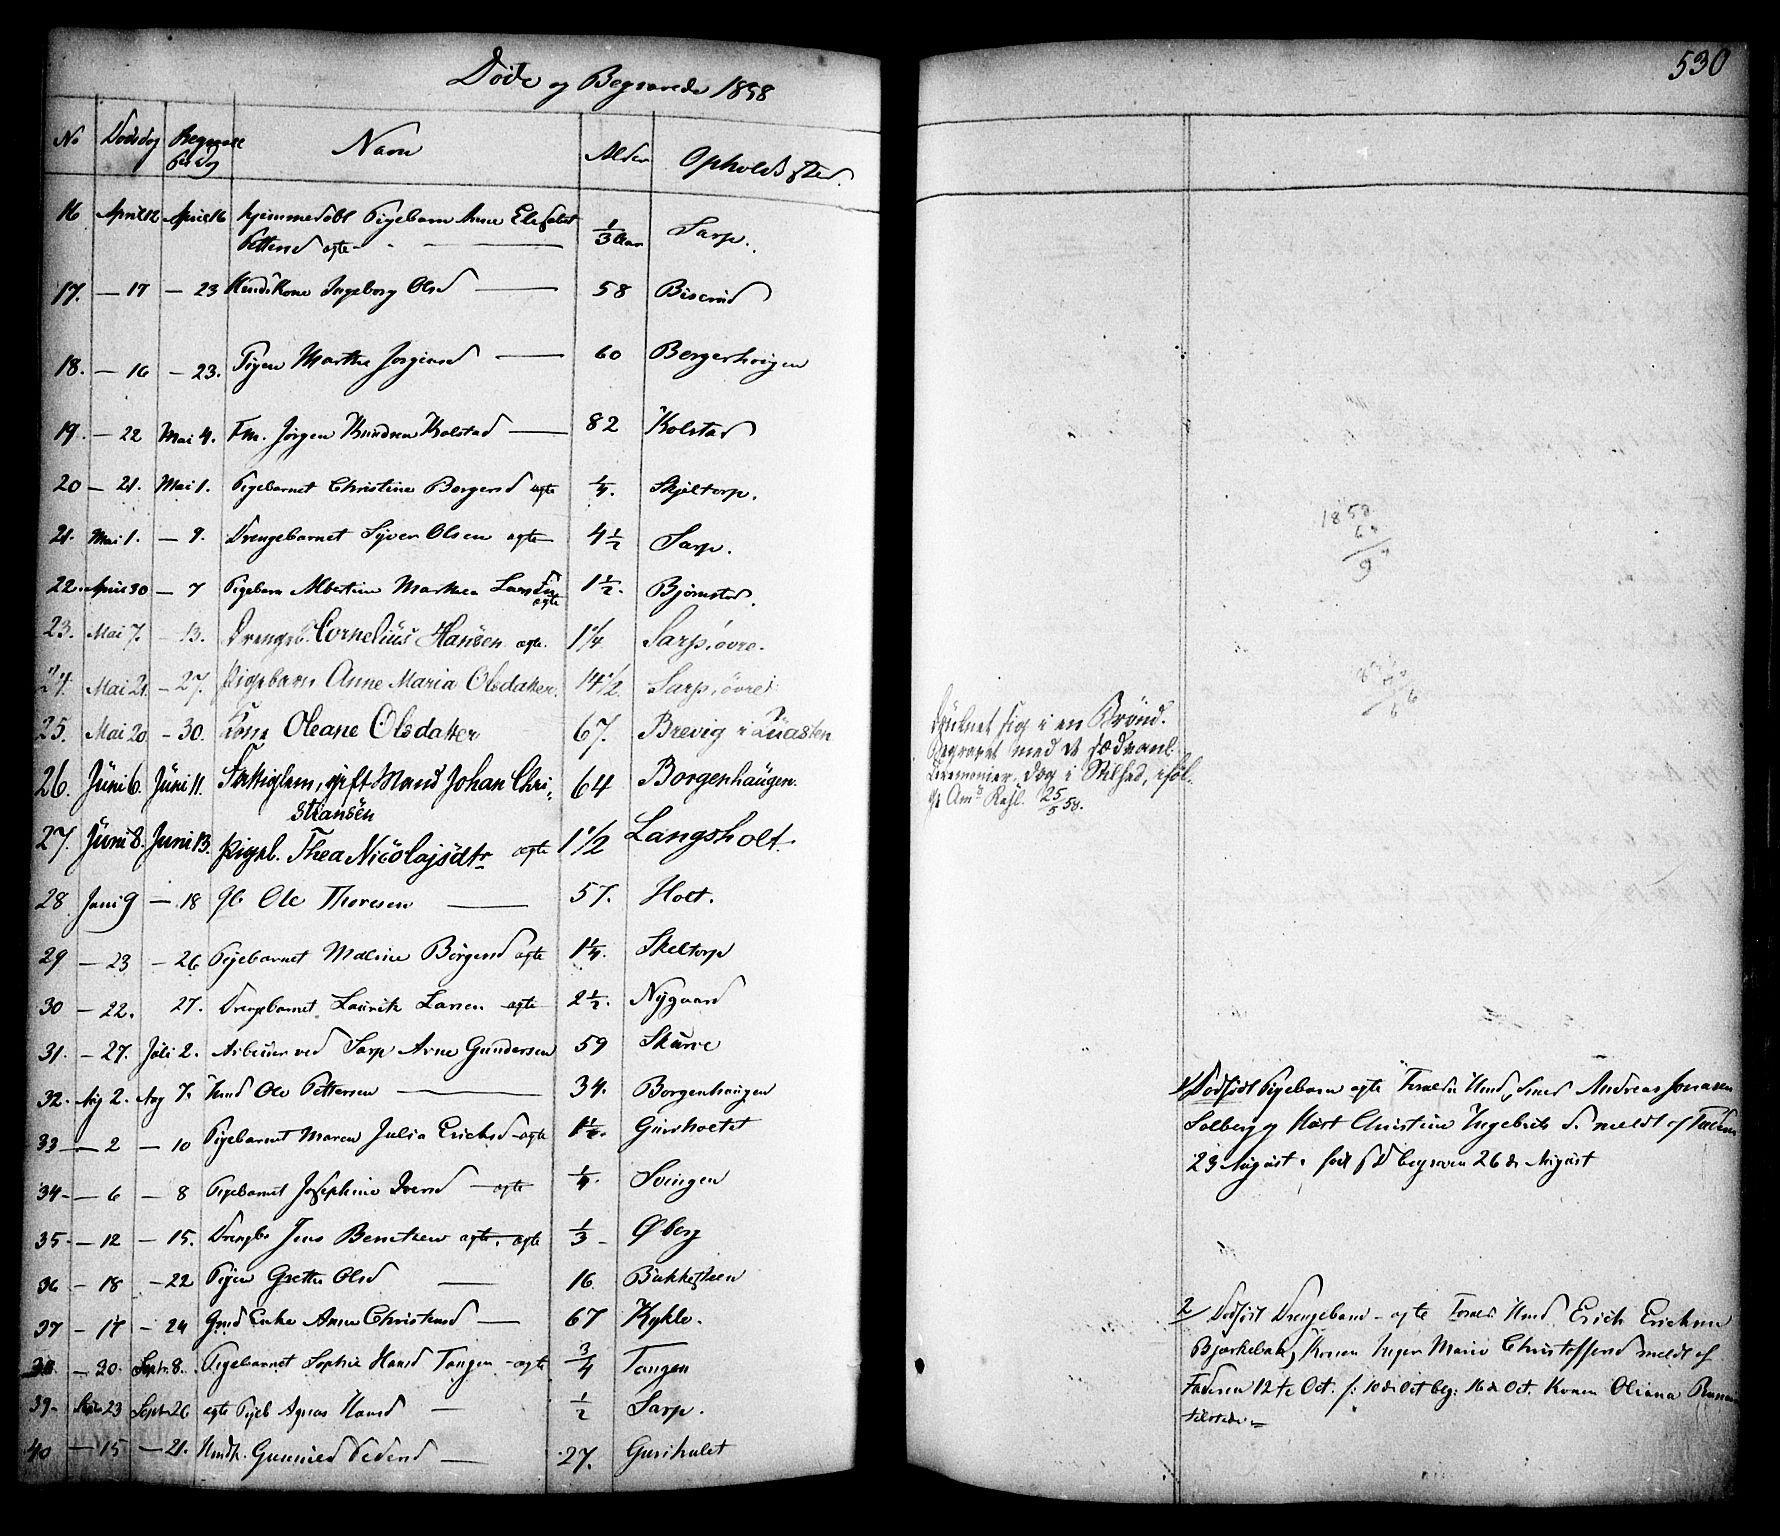 Døde og Begravede 1858
530
No Dødsdag Begravelsesdag Navn Alder Opholdssted.
16 April 12 April 16 hjemmedøbt Pigebarn Anne Elisabet
Pettersd ægte - - 1/3 Aar Sarp.
17. — 17 — 23 Huuskone Ingeborg Olsd — 58 Biserød
18. — 16 — 23. Pigen Marthe Jørgensd — 60 Borgerhougen
19. — 22 Mai 4. Fm. Jørgen Knudsen Kolstad — 82 Kolstad
20 — 21. Mai 1. Pigebarnet Christine Borgersd ægte 1/4. Skjeltorp.
21. Mai 1. — 9. Drengebarnet Syver Olsen ægte 4 1/2 Sarp.
22. April 30 — 7 Pigebarn Albertine Mathea Larsd
ægte 1 1/2. Bjørnstad.
23. Mai 7. — 13. Drengeb. Cornelius Hansen ægte. 1 1/4 Sarp, øvre.
24. Mai 21. — 27. Pigebarn Anne Maria Olsdatter. 14 1/2. Sarp, øvre.
25. Mai 20 — 30. Kone Oleane Olsdatter 67. Brevig i Tuasten
26. Juni 6. Juni 11. gift Mand Johan Chri-
stiansen 64 Borgenhaugen.
27. Juni 8. Juni 13. Pigeb. Thea Nicolajsdtr ægte 1 1/2 Langsholt.
28 Juni 9 — 18 Ole Thoresen — 57. Holt.
29 — 23 — 26 Pigebarnet Maline Børgersd ægte 1 1/4. Skeltorp
30 — 22. 27. Drengebarnet Laurits Larsen ægte 2 1/2. Nygaard
31. — 27. Juli 2. Arbeider ved Sarp Arne Gundersen 59 Skarve
32. Aug 2. Aug 7. Huusmd Ole Pettersen — 34. Borgenhaugen
33 — 2 — 10 Pigebarnet Maren Julia Ericksd ægte 1 1/4. Gursholtet
34 — 6 — 8 Pigebarnet Josephine Iversd — ægte 1/4. Svingen
35 — 12 — 15. Drengb. Jens Berntsen ægte. ægte 1/3 — Øberg
36 — 18 — 22 Pigen Grethe Olsd — 16 Bakkesteen
37 — 17 — 24 Gmd Enke Anne Christensd — 67 Kykle.
38. — 30. Septr. 8. Pigebarnet Sophie Hansd Tangen — ægte 3/4 Tangen
39. Septr 23 Septr 26 ægte Pigeb Agnes Hansd — 1/2 Sarp.
40 — 15 — 21. Huusk. Gunnild Pedersd — 27. Gursholtet
1858
9
Druknet sig i en Brønd.
Begravet med de sædvanl.
Ceremonier, dog i Stilhed, ifølge
Amts Resl. 25/5 58.
1/ Dødfødt Pigebarn ægte Forældre Huusmd Andreas Jonasen
Solberg og Kone Christine Ingebrits d. meldt af Faderen
23 August. født begraven 26 de August
2/ Dødfødt Drengebarn — ægte Foræld. Huusmd Erich Ericksen
Bjørkebæk, Konen Inger Marie Christoffersd meldt af
Faderen 12te Oct. f: 10de Oct beg. 16de Oct. Konen Oliana
tilstede.